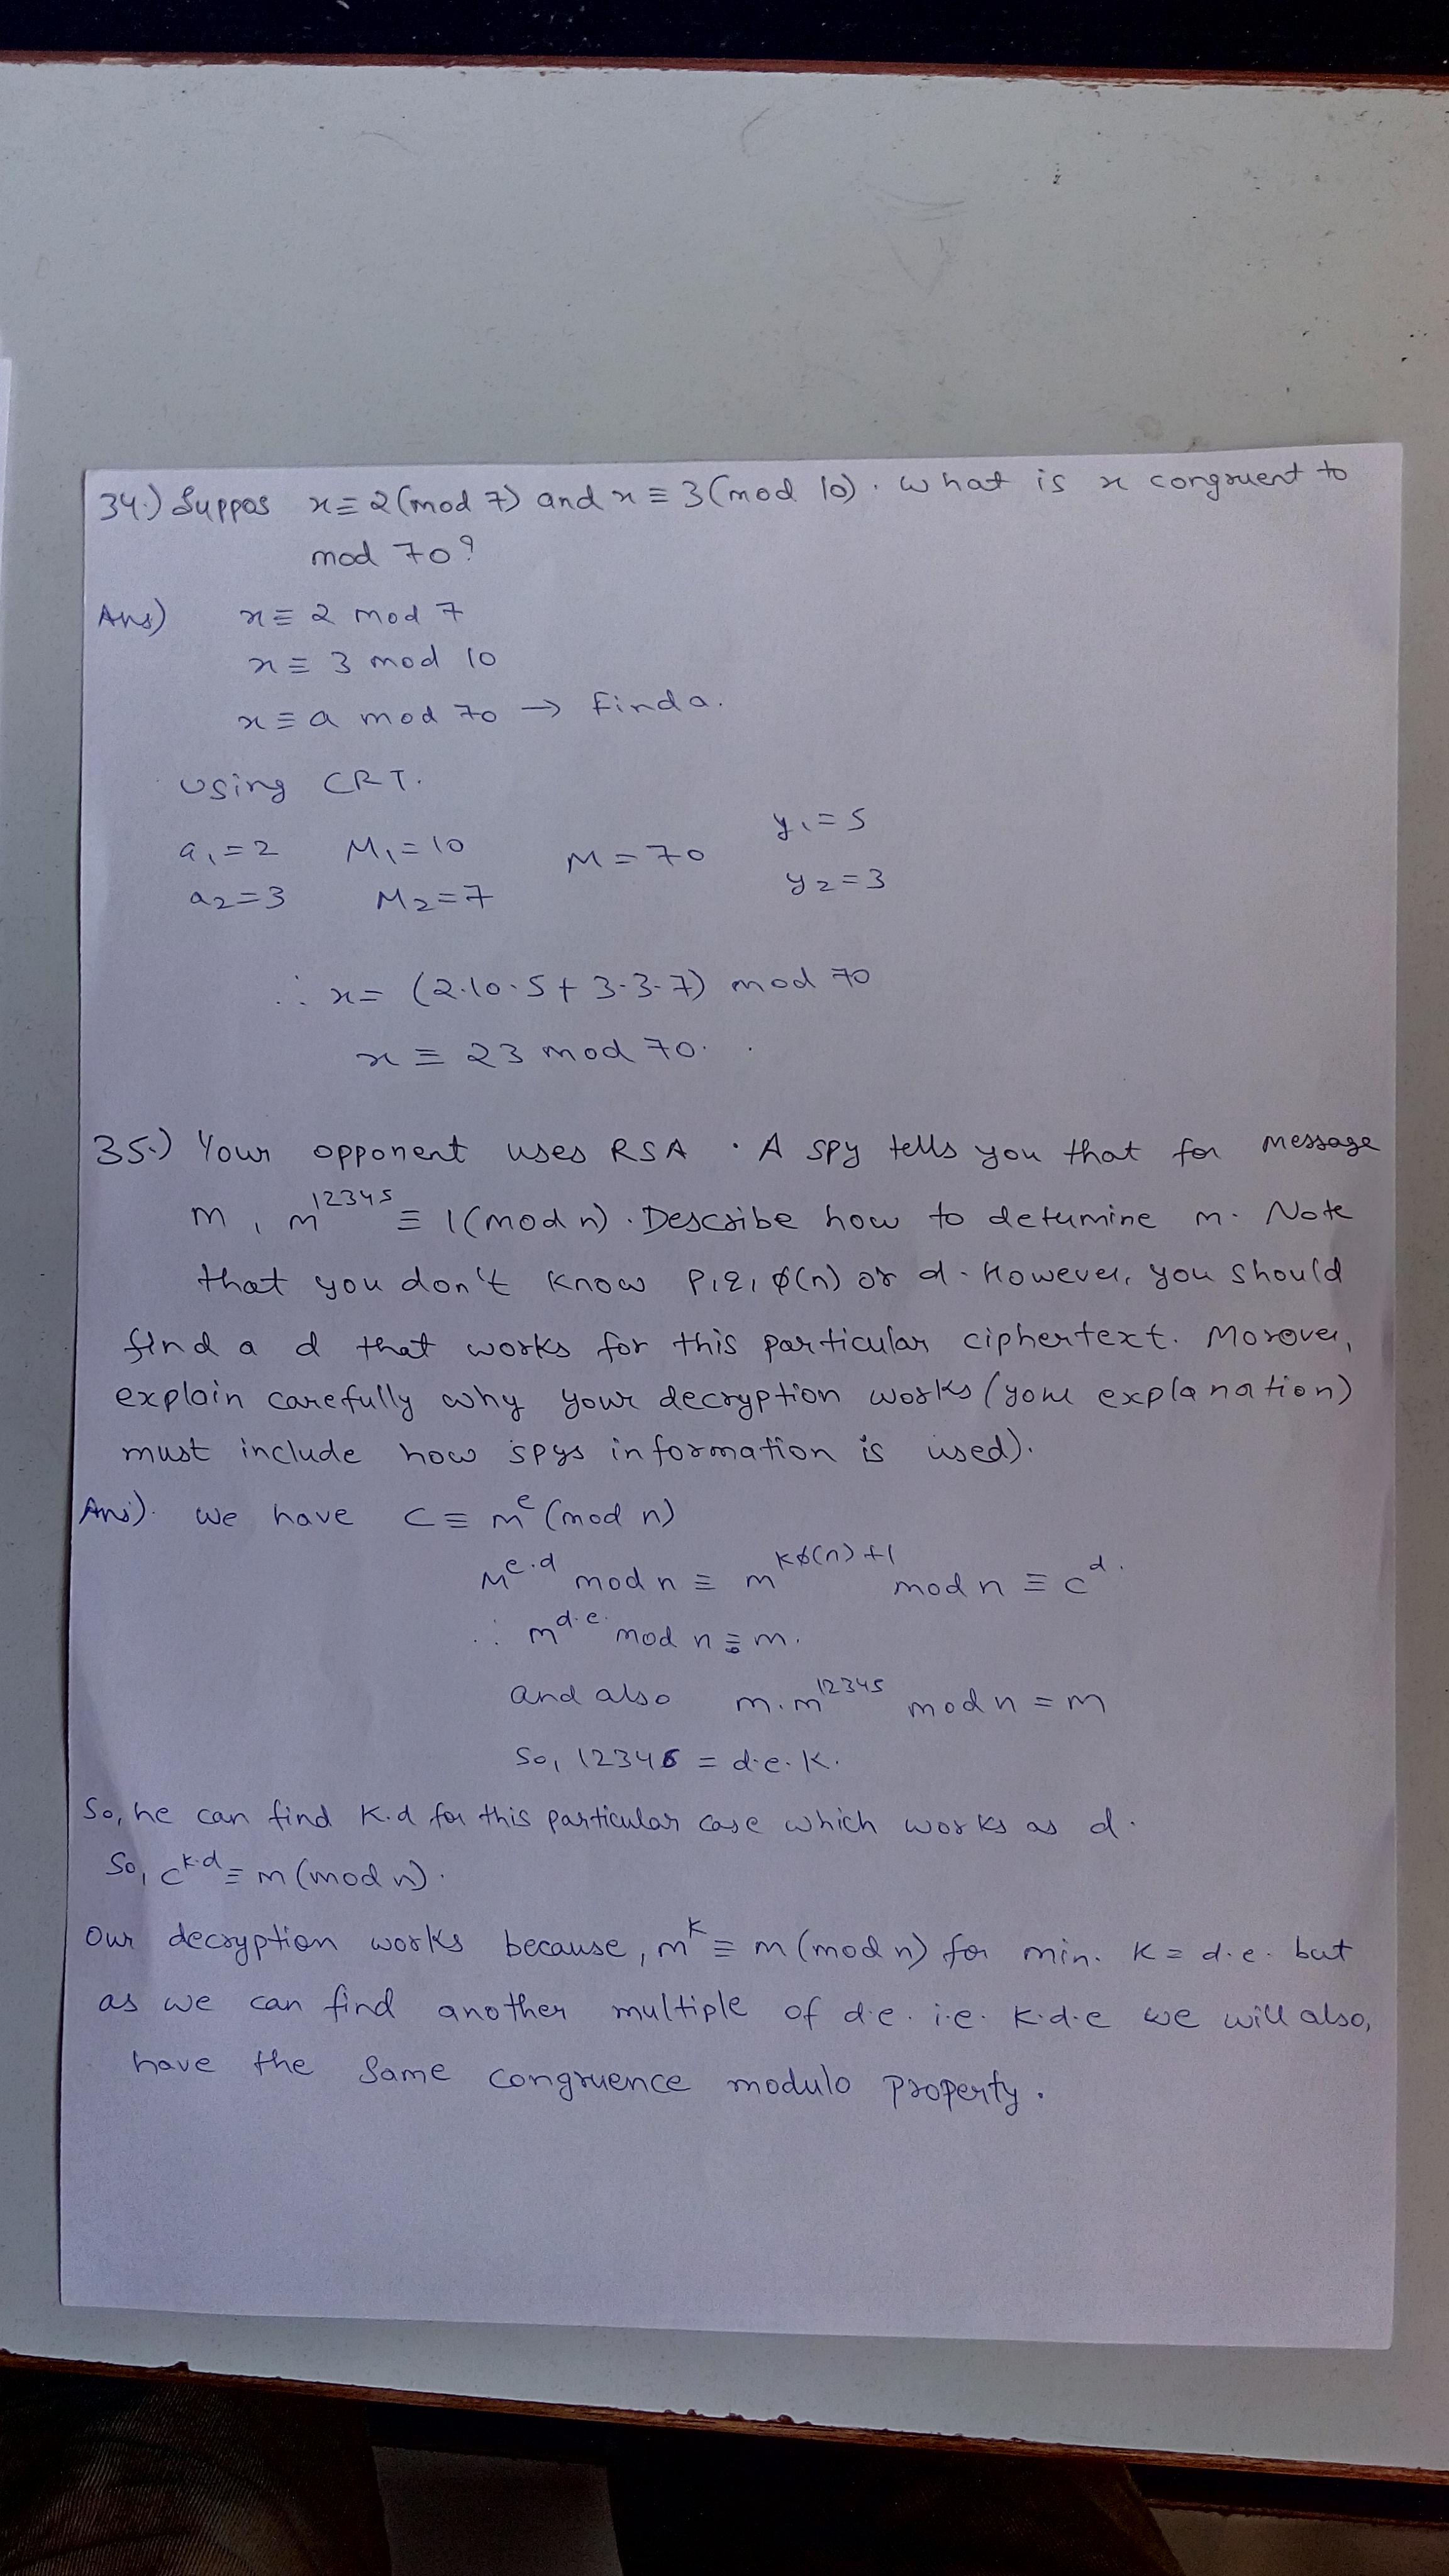 34.) Suppos x ≡ 2 (mod 7) and x ≡ 3 (mod 10). What is x congruent to
mod 70?
Ans) x ≡ 2 mod 7
x ≡ 3 mod 10
x ≡ a mod 70 → Find a.
Using CRT.
a₁ = 2 M₁ = 10 M = 70 y₁ = 5
a₂ = 3 M₂ = 7 y₂ = 3
∴ x = (2.10.5 + 3.3.7) mod 70
x ≡ 23 mod 70.
35.) Your opponent uses RSA. A spy tells you that for message
m, m^12345 ≡ 1 (mod n). Describe how to detumine m. Note
that you don't know p, q, φ(n) or d. However, you should
find a d that works for this particular ciphertext. Morover,
explain carefully why your decryption works (your explanation)
must include how spys information is used).
Ans). We have C ≡ m^e (mod n)
M^e.d mod n ≡ m^kφ(n)+1 mod n ≡ c^d.
∴ m^d.e. mod n ≡ m.
and also m.m^12345 mod n = m
So, 12346 = d.e.k.
So, he can find k.d for this particular case which works as d.
So, c^k.d ≡ m (mod n).
Our decryption works because, m^k ≡ m (mod n) for min. k = d.e. but
as we can find another multiple of d.e. i.e. k.d.e we will also,
have the same congruence modulo property.